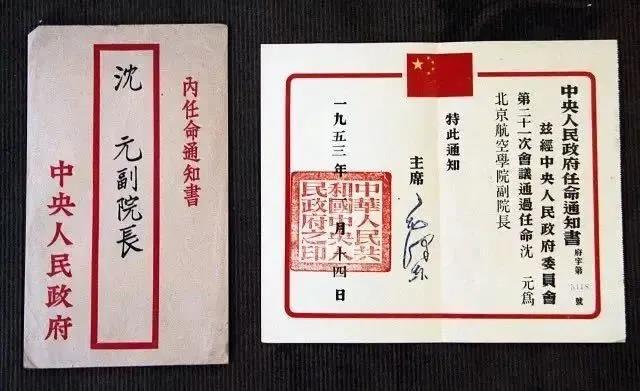 內任命通知書
沈 元副院長
中央人民政府
中央人民政府任命通知書
府字第 號
茲經中央人民政府委員會
第二十一次會議通過任命沈 元爲
北京航空學院副院長
特此通知
主席 毛澤東
一九五三年 月十四日
中華人民共
和國中央人
民政府之印